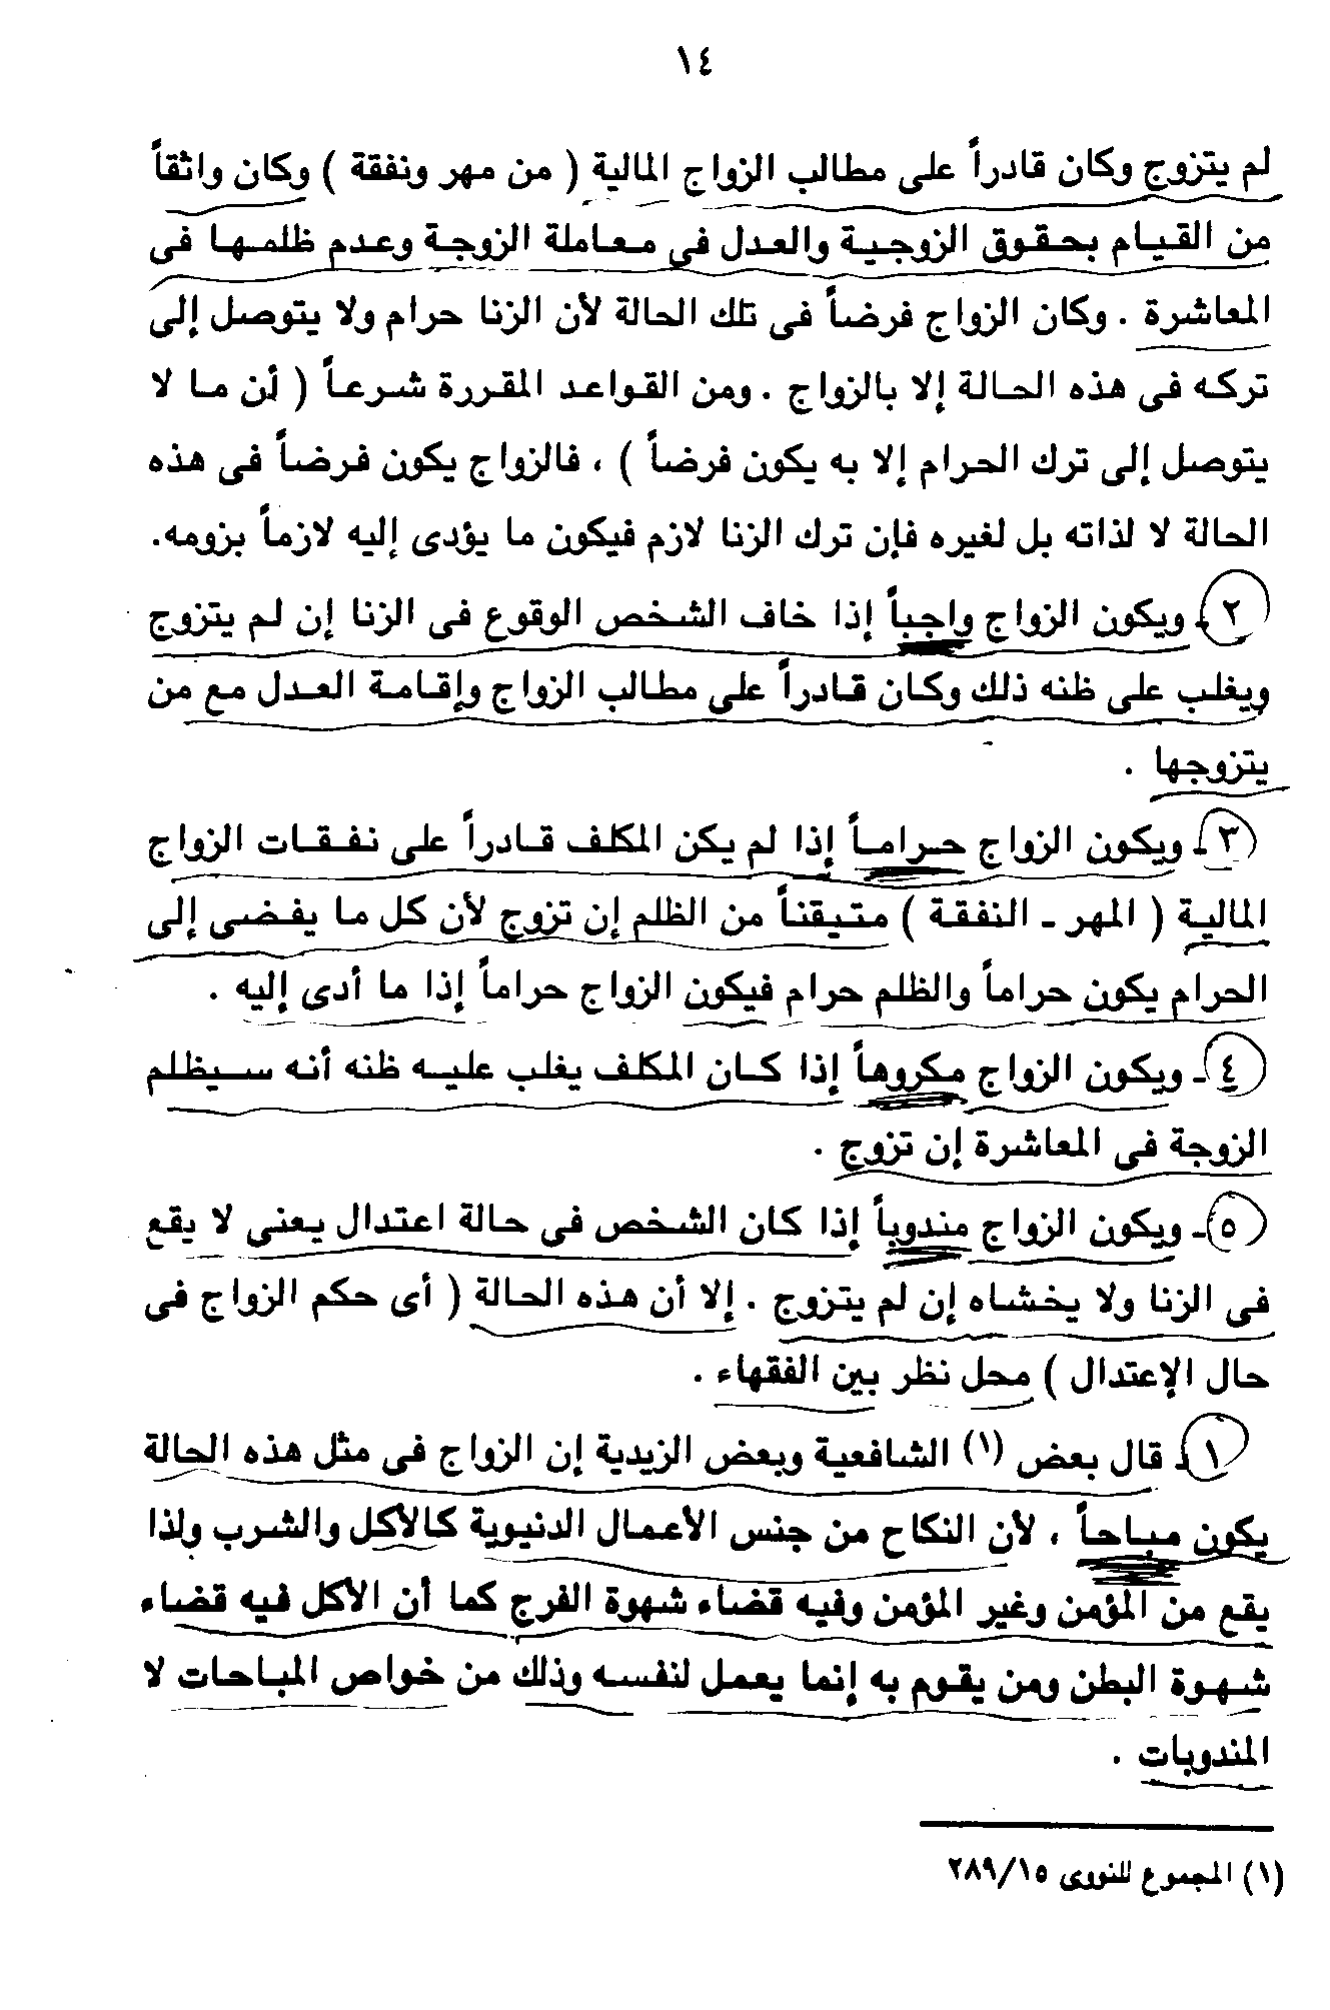 ١٤
لم يتزوج وكان قادراً على مطالب الزواج المالية ( من مهر ونفقة ) وكان واثقاً
من القيام بحقوق الزوجية والعدل فى معاملة الزوجة وعدم ظلمها فى
المعاشرة . وكان الزواج فرضاً فى تلك الحالة لأن الزنا حرام ولا يتوصل إلى
تركه فى هذه الحالة إلا بالزواج . ومن القواعد المقررة شرعاً ( أن ما لا
يتوصل إلى ترك الحرام إلا به يكون فرضاً ) ، فالزواج يكون فرضاً فى هذه
الحالة لا لذاته بل لغيره فإن ترك الزنا لازم فيكون ما يؤدى إليه لازماً بزومه.
٢ـ ويكون الزواج واجباً إذا خاف الشخص الوقوع فى الزنا إن لم يتزوج
ويغلب على ظنه ذلك وكان قادراً على مطالب الزواج وإقامة العدل مع من
يتزوجها .
٣ـ ويكون الزواج حراماً إذا لم يكن المكلف قادراً على نفقات الزواج
المالية ( المهر ـ النفقة ) متيقناً من الظلم إن تزوج لأن كل ما يفضى إلى
الحرام يكون حراماً والظلم حرام فيكون الزواج حراماً إذا ما أدى إليه .
٤ـ ويكون الزواج مكروهاً إذا كان المكلف يغلب عليه ظنه أنه سيظلم
الزوجة فى المعاشرة إن تزوج .
٥ـ ويكون الزواج مندوباً إذا كان الشخص فى حالة اعتدال يعنى لا يقع
فى الزنا ولا يخشاه إن لم يتزوج . إلا أن هذه الحالة ( أى حكم الزواج فى
حال الإعتدال ) محل نظر بين الفقهاء .
١ـ قال بعض (١) الشافعية وبعض الزيدية إن الزواج فى مثل هذه الحالة
يكون مباحاً ، لأن النكاح من جنس الأعمال الدنيوية كالأكل والشرب ولذا
يقع من المؤمن وغير المؤمن وفيه قضاء شهوة الفرج كما أن الأكل فيه قضاء
شهوة البطن ومن يقوم به إنما يعمل لنفسه وذلك من خواص المباحات لا
المندوبات .
(١) المجموع للنووى ٢٨٩/١٥